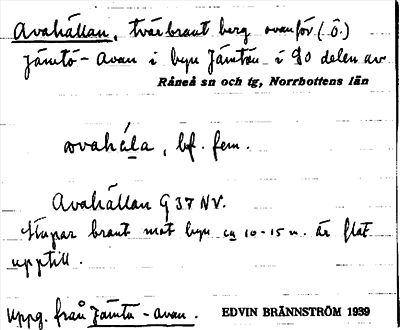 Avahällan, tvärbrant berg ovanför (Ö.)
Jämtö-Avan i byn Jämtön i SO delen av
Råneå sn och tg, Norrbottens län
avahɛ́la, bf. fem.
Avahällan G 37 NV.
Stupar brant mot byn ca 10-15 m. är flat
upptill.
Uppg. från Jämtö-avan.
EDVIN BRÄNNSTRÖM 1939